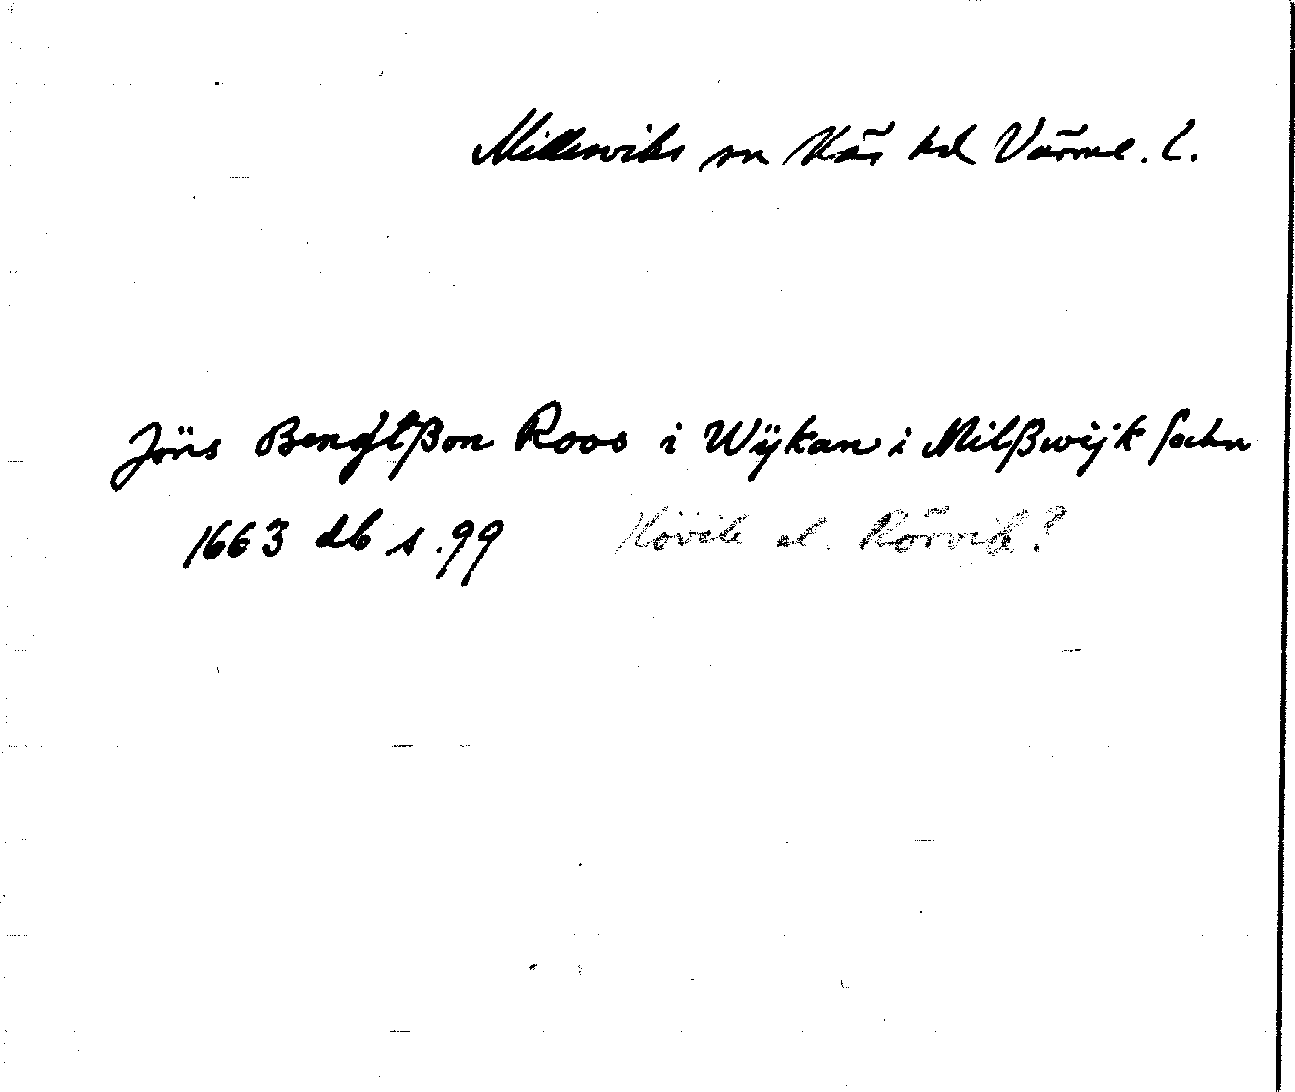 Millesviks sn Näs hd Värml. l.
Jöns Bengtßon Roos i Wÿkan i Milßwijk sochn
1663 db s. 99 Hövik el. Rörvik?